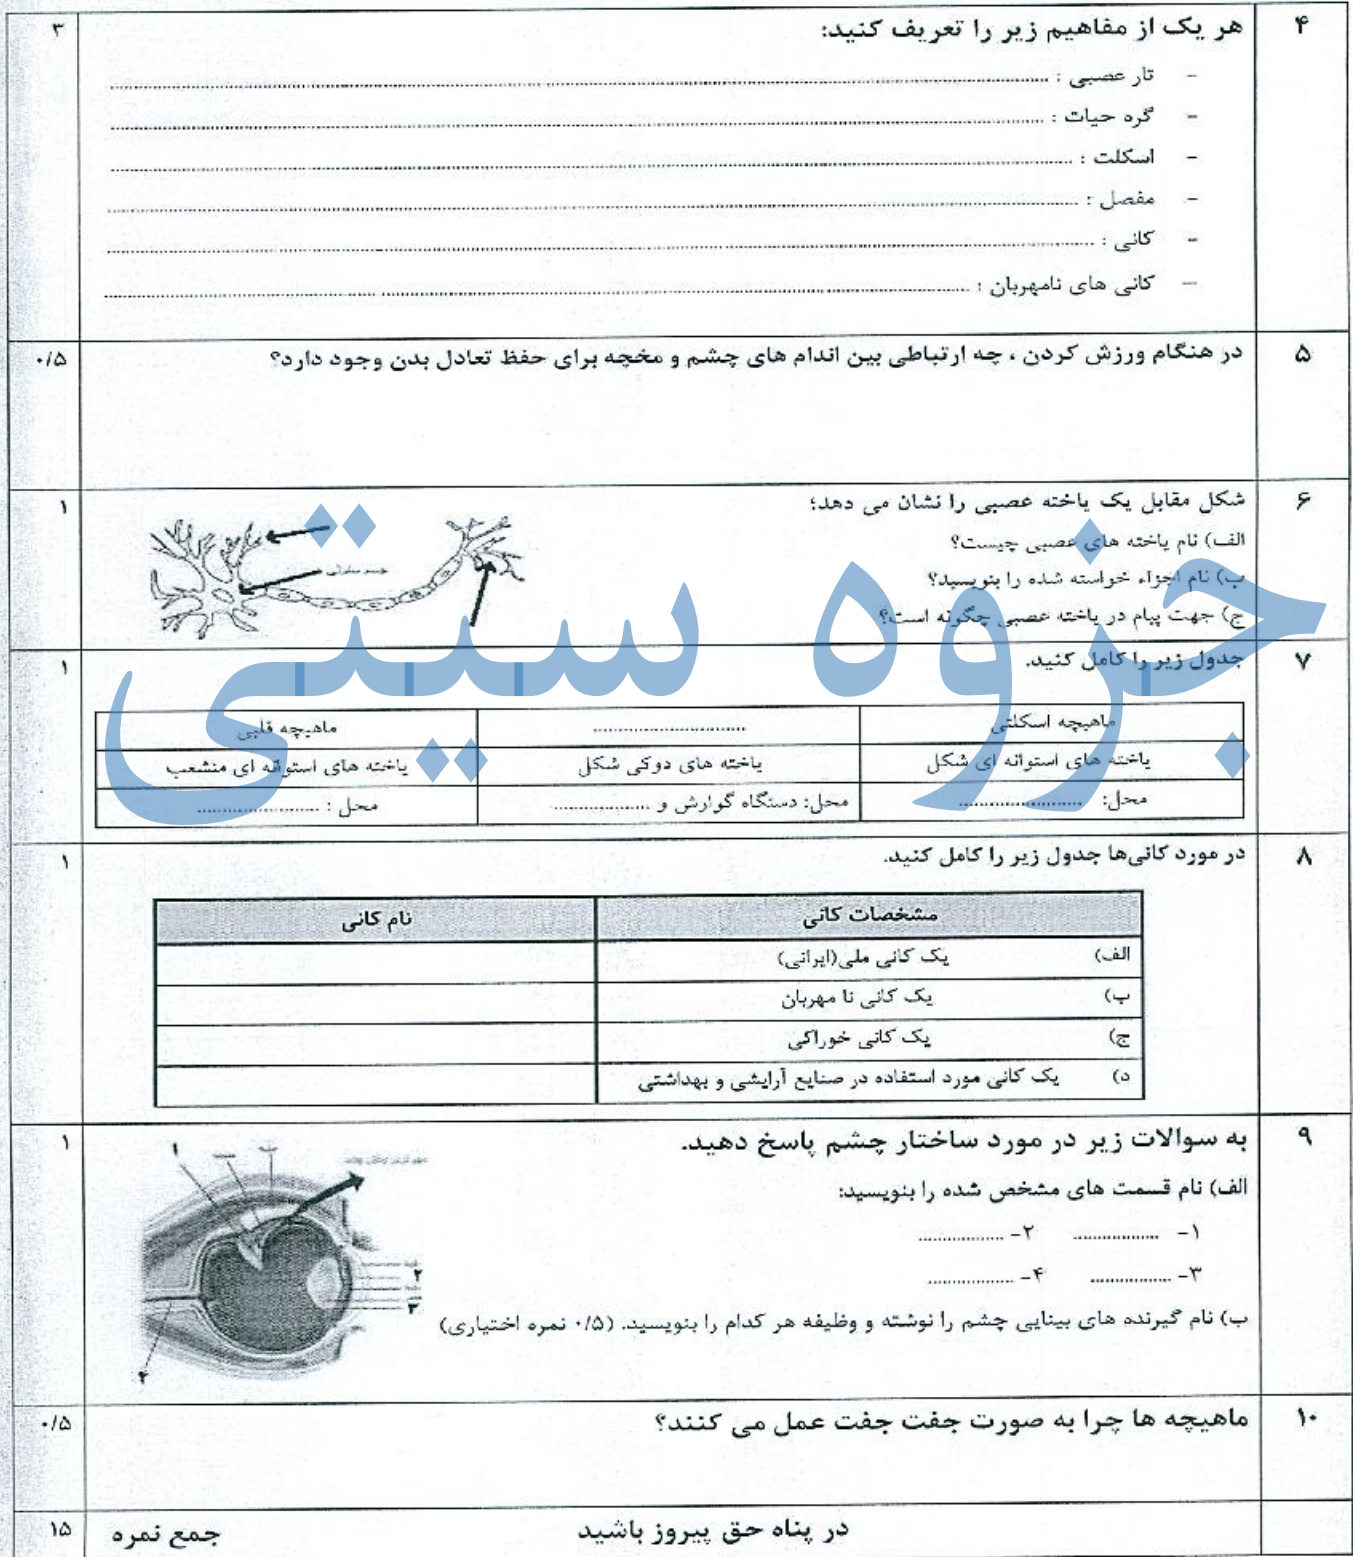 ۴ هر یک از مفاهیم زیر را تعریف کنید: ۳
- تار عصبی : ........................
- گره حیات : ........................
- اسکلت : ........................
- مفصل : ........................
- کانی : ........................
- کانی های نامهربان : ........................
۵ در هنگام ورزش کردن ، چه ارتباطی بین اندام های چشم و مخچه برای حفظ تعادل بدن وجود دارد؟ ۰/۵
۶ شکل مقابل یک یاخته عصبی را نشان می دهد؛ ۱
الف) نام یاخته های عصبی چیست؟
ب) نام اجزاء خواسته شده را بنویسید؟
ج) جهت پیام در یاخته عصبی چگونه است؟
جزوه سیتی
۷ جدول زیر را کامل کنید. ۱
ماهیچه اسکلتی ........................ ماهیچه قلبی
یاخته های استوانه ای شکل یاخته های دوکی شکل یاخته های استوانه ای منشعب
محل: .................... محل: دستگاه گوارش و ................ محل : ....................
۸ در مورد کانی‌ها جدول زیر را کامل کنید. ۱
مشخصات کانی نام کانی
الف) یک کانی ملی(ایرانی)
ب) یک کانی نا مهربان
ج) یک کانی خوراکی
د) یک کانی مورد استفاده در صنایع آرایشی و بهداشتی
۹ به سوالات زیر در مورد ساختار چشم پاسخ دهید. ۱
الف) نام قسمت های مشخص شده را بنویسید:
۱- ................ ۲- ................
۳- ................ ۴- ................
ب) نام گیرنده های بینایی چشم را نوشته و وظیفه هر کدام را بنویسید. (۰/۵ نمره اختیاری)
۱
۲
۳
۴
۱۰ ماهیچه ها چرا به صورت جفت جفت عمل می کنند؟ ۰/۵
در پناه حق پیروز باشید جمع نمره ۱۵